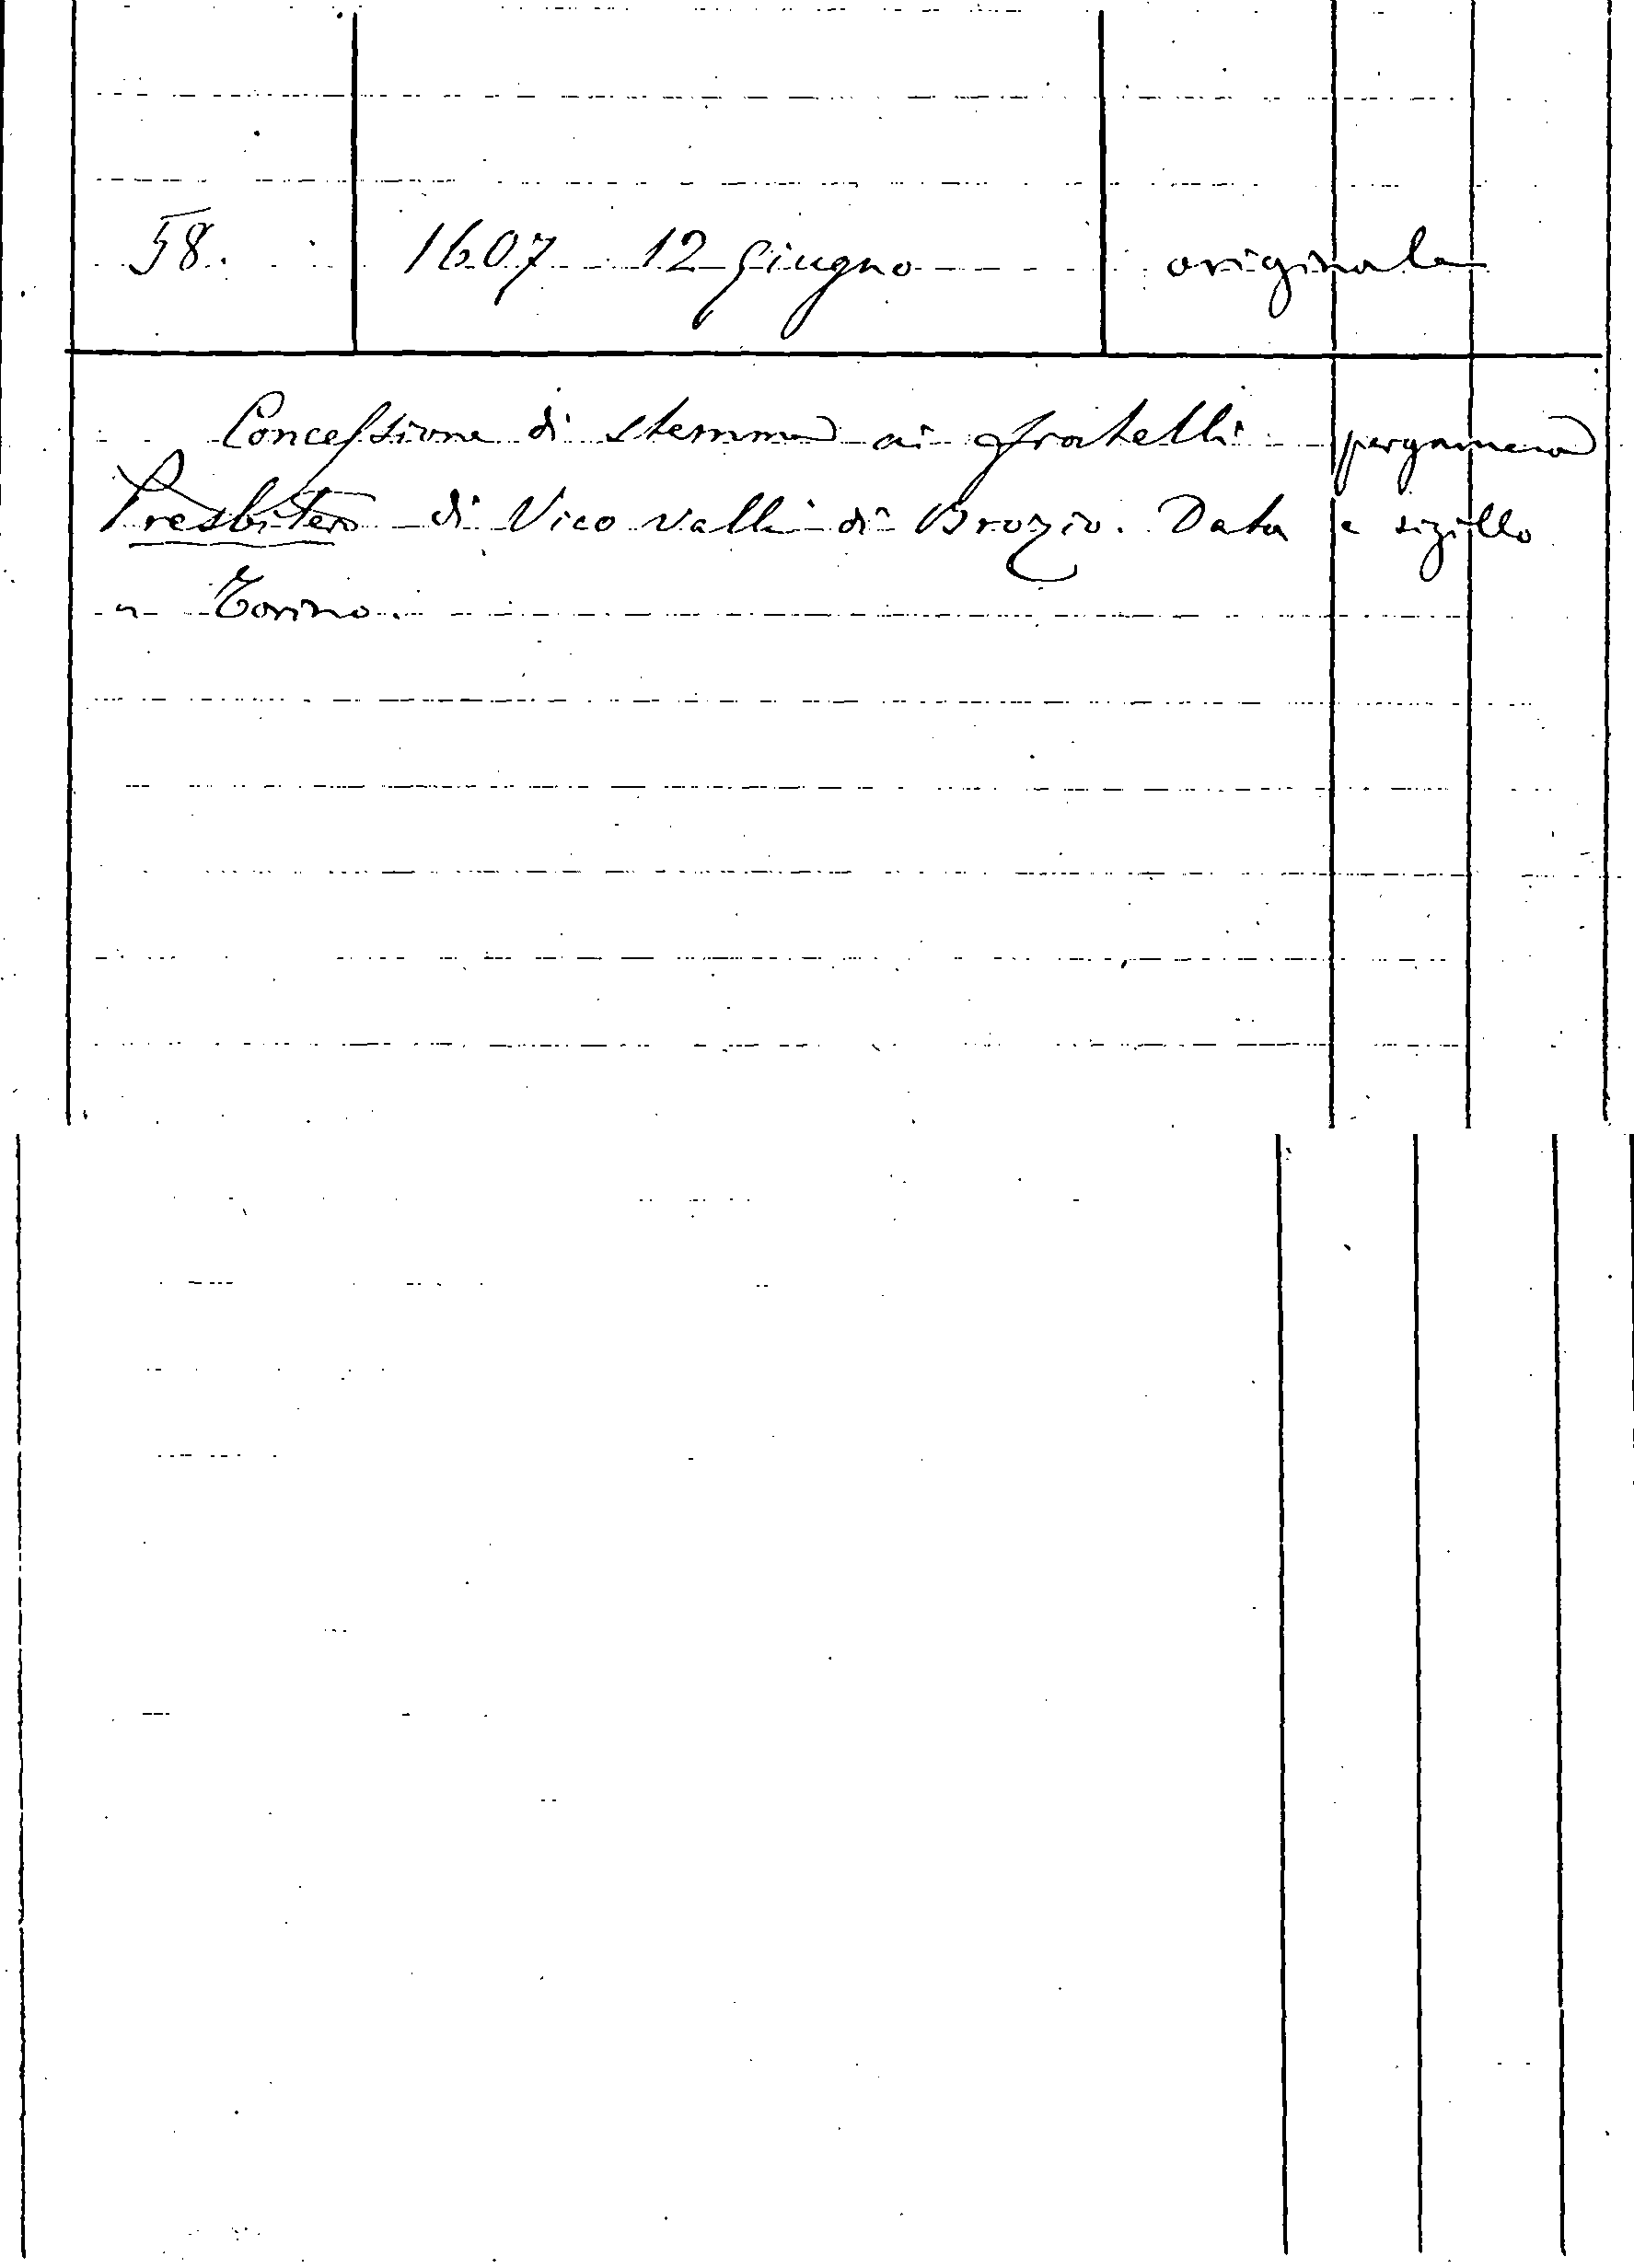 58. 1607 12 Giugno originale
Concessione di stemma ai fratelli pergamena
Presbitero di Vico valli di Brozio. Data e sigillo
a Torino.